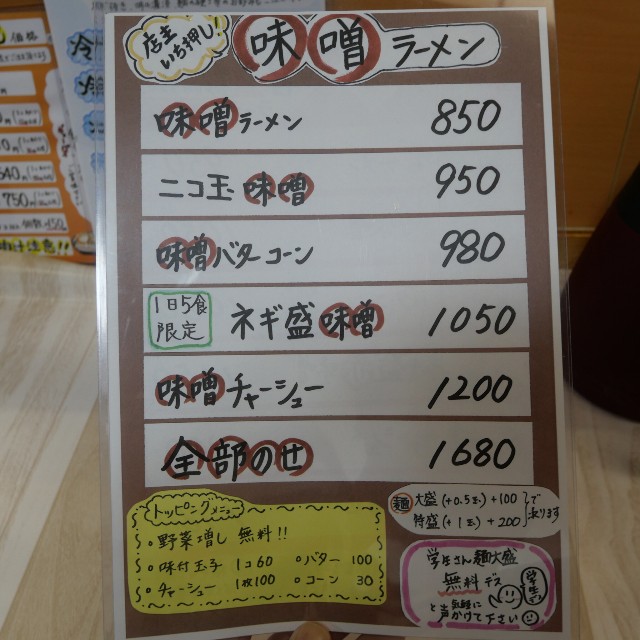 店主
いち押し!
味噌ラーメン
味噌ラーメン 850
ニコ玉味噌 950
味噌バターコーン 980
1日5食
限定
ネギ盛味噌 1050
味噌チャーシュー 1200
全部のせ 1680
トッピングメニュー
・野菜増し 無料!!
・味付玉子 1コ60
・バター 100
・チャーシュー 1枚100
・コーン 30
麺 大盛(+0.5玉)+100
特盛(+1玉)+200
で承ります
学生さん麺大盛
無料デス
と気軽に
声かけて下さい
価格
750円